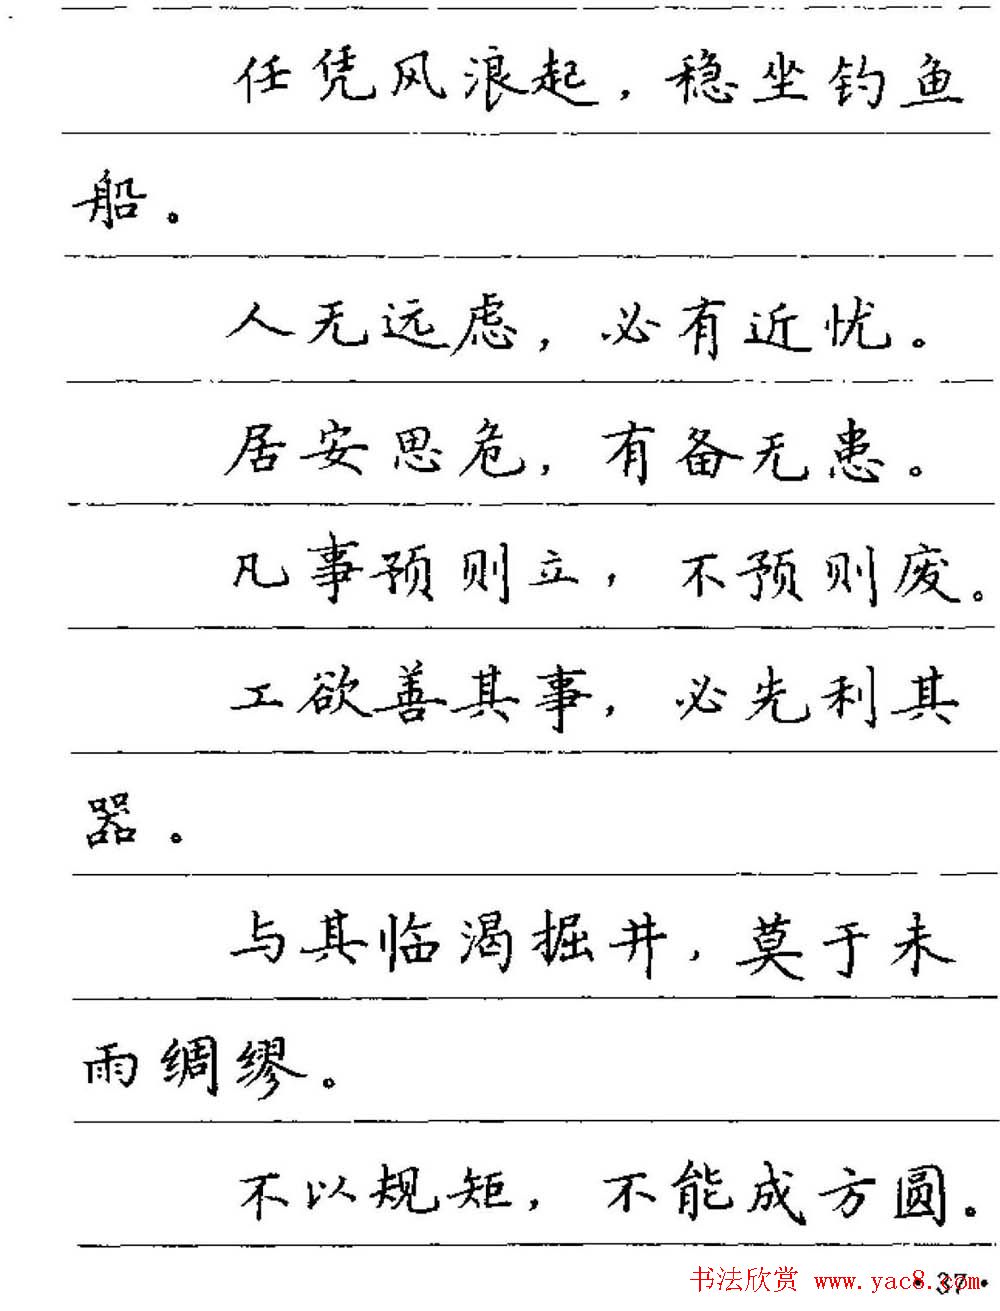 任凭风浪起，稳坐钓鱼
船。
人无远虑，必有近忧。
居安思危，有备无患。
凡事预则立，不预则废。
工欲善其事，必先利其
器。
与其临渴掘井，莫于未
雨绸缪。
不以规矩，不能成方圆。
书法欣赏 www.yac8.com
·37·